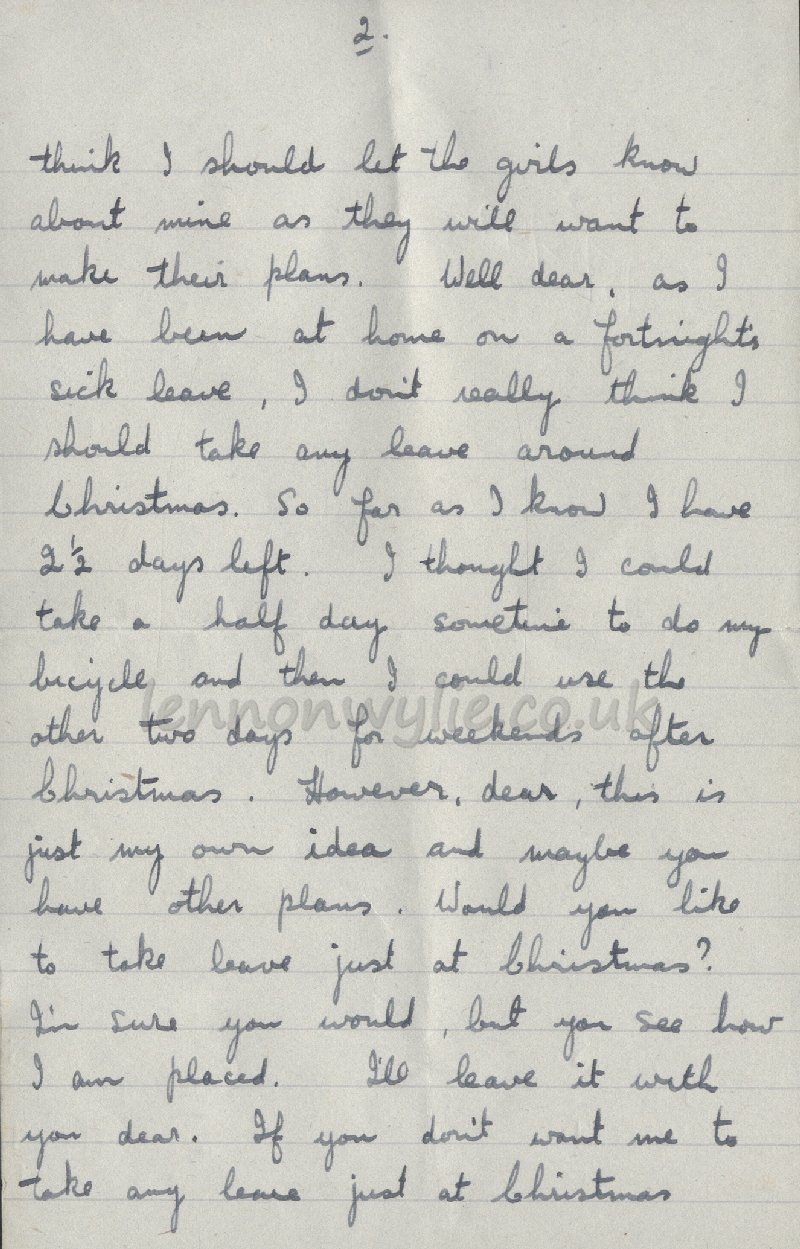 2.
think I should let the girls know
about mine as they will want to
make their plans. Well dear, as I
have been at home on a fortnight's
sick leave, I don't really think I
should take any leave around
Christmas. So far as I know I have
2½ days left. I thought I could
take a half day sometime to do my
bicycle and then I could use the
lennonwylie.co.uk
other two days for weekends after
Christmas. However, dear, this is
just my own idea and maybe you
have other plans. Would you like
to take leave just at Christmas?
I'm sure you would, but you see how
I am placed. I'll leave it with
you dear. If you don't want me to
take any leave just at Christmas